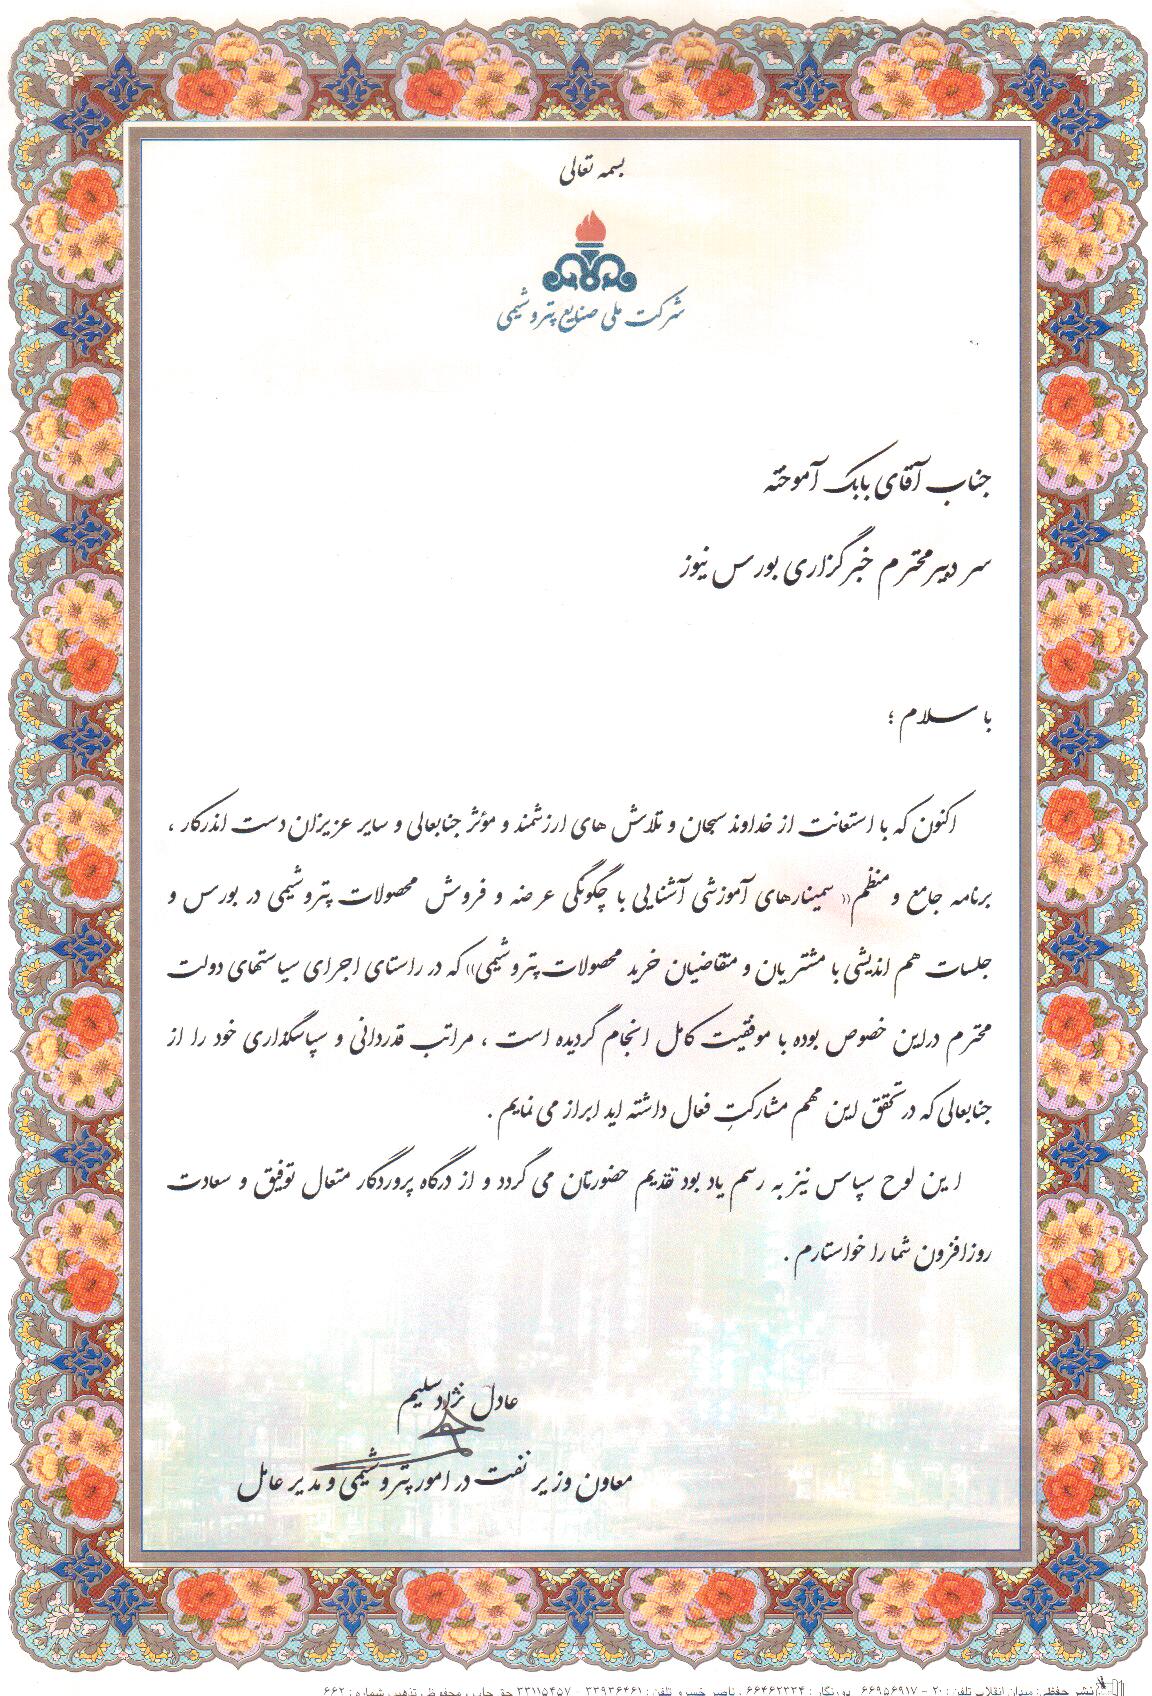 بسمه تعالی
شرکت ملی صنایع پتروشیمی
جناب آقای بابک آموخته
سردبیر محترم خبرگزاری بورس نیوز
با سلام ؛
اکنون که با استعانت از خداوند سبحان و تلاش های ارزشمند و مؤثر جنابعالی و سایر عزیزان دست اندرکار ،
برنامه جامع و منظم« سمینارهای آموزشی آشنایی با چگونگی عرضه و فروش محصولات پتروشیمی در بورس و
جلسات هم اندیشی با مشتریان و متقاضیان خرید محصولات پتروشیمی» که در راستای اجرای سیاستهای دولت
محترم دراین خصوص بوده با موفقیت کامل انجام گردیده است ، مراتب قدردانی و سپاسگذاری خود را از
جنابعالی که در تحقق این مهم مشارکتِ فعال داشته اید ابراز می نمایم .
این لوح سپاس نیز به رسم یاد بود تقدیم حضورتان می گردد و از درگاه پروردگار متعال توفیق و سعادت
روزافزون شما را خواستارم .
عادل نژاد سلیم
معاون وزیر نفت در امور پتروشیمی و مدیر عامل
نشر حفظی: میدان انقلاب تلفن : ۲۰ - ۶۶۹۵۶۹۱۷ پورنگار : ۶۶۴۶۲۳۳۴ ، ناصر خسرو تلفن : ۳۳۹۳۶۴۶۱ - ۳۳۱۱۵۴۵۷ حق چاپ محفوظ ، تذهیب شماره : ۶۶۲